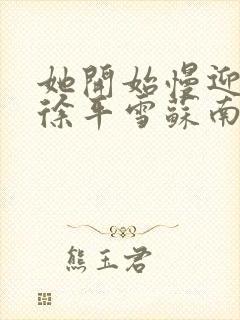 她開始慢迎
徐平雪蘇南
熊玉君